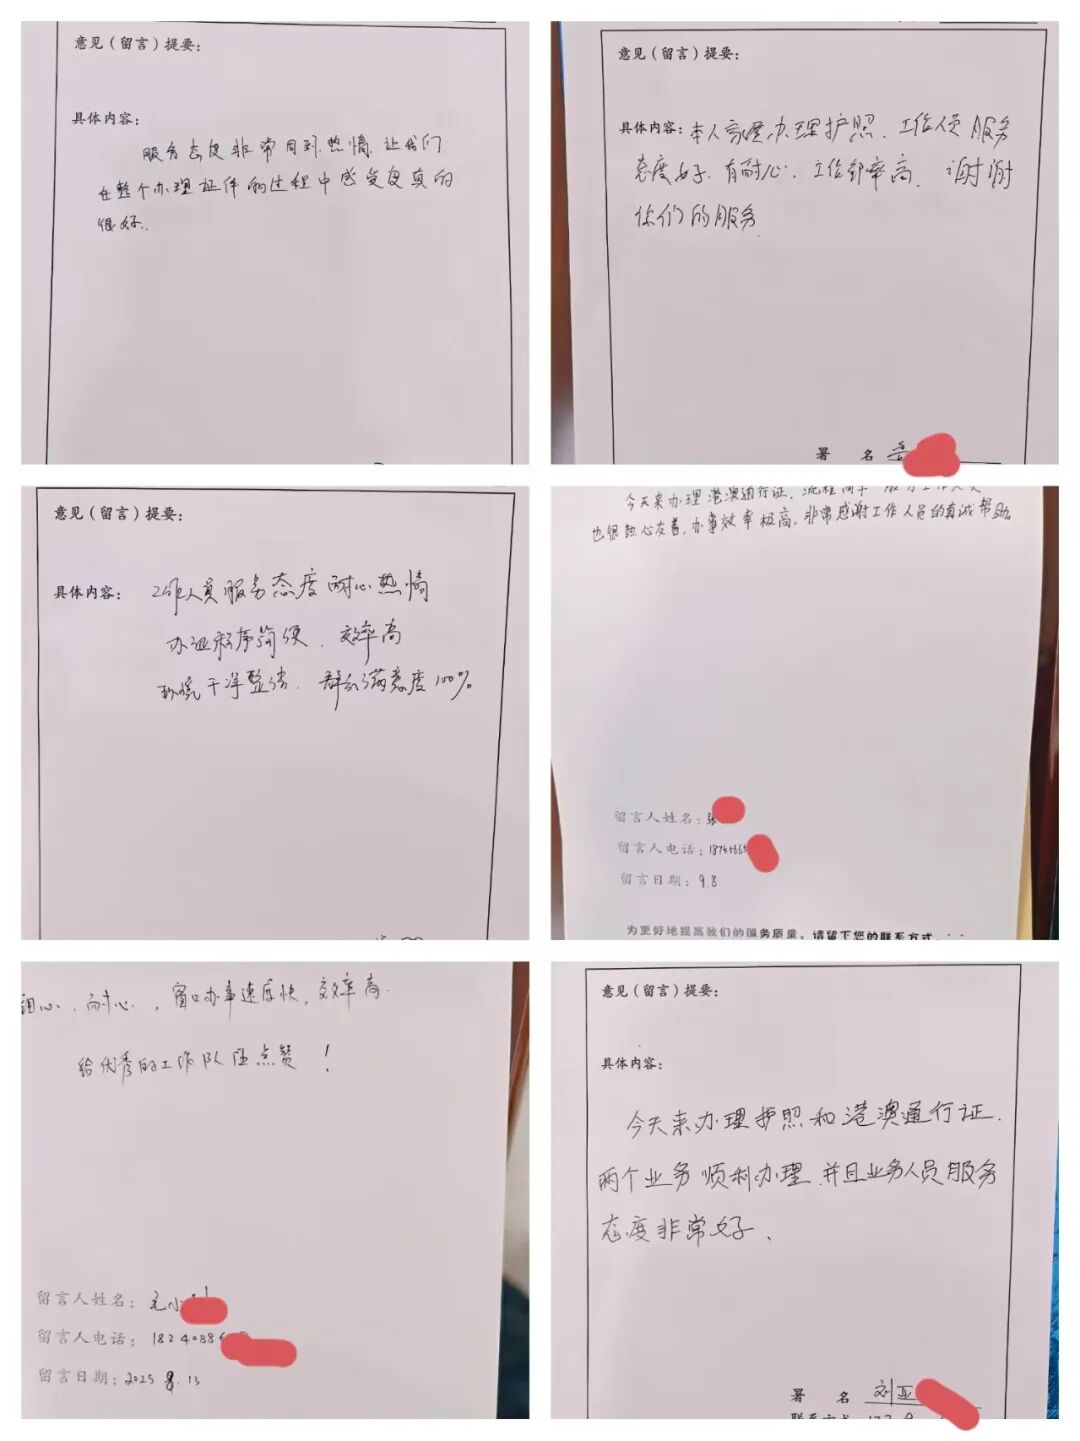 意见（留言）提要：
具体内容：
服务态度非常周到.热情.让我们
在整个办理证件的过程中感受度真的
很好.
意见（留言）提要：
具体内容：本人办理护照.工作人员服务
态度好.有耐心.工作效率高.谢谢
你们的服务.
署 名
意见（留言）提要：
具体内容：工作人员服务态度耐心热情
办证程序简便.效率高
环境干净整洁.群众满意度100%.
今天来办理港澳通行证.流程简单
也很热心友善.办事效率极高.非常感谢工作人员的真诚帮助.
留言人姓名：张
留言人电话：
留言日期：9.8
为更好地提高我们的服务质量，请留下您的联系方式，
细心、耐心，窗口办事速度快，效率高.
给优秀的工作队伍点赞！
留言人姓名：
留言人电话：1824088
留言日期：2025 8.13
意见（留言）提要：
具体内容：
今天来办理护照和港澳通行证.
两个业务顺利办理.并且业务人员服务
态度非常好、
署 名 刘亚